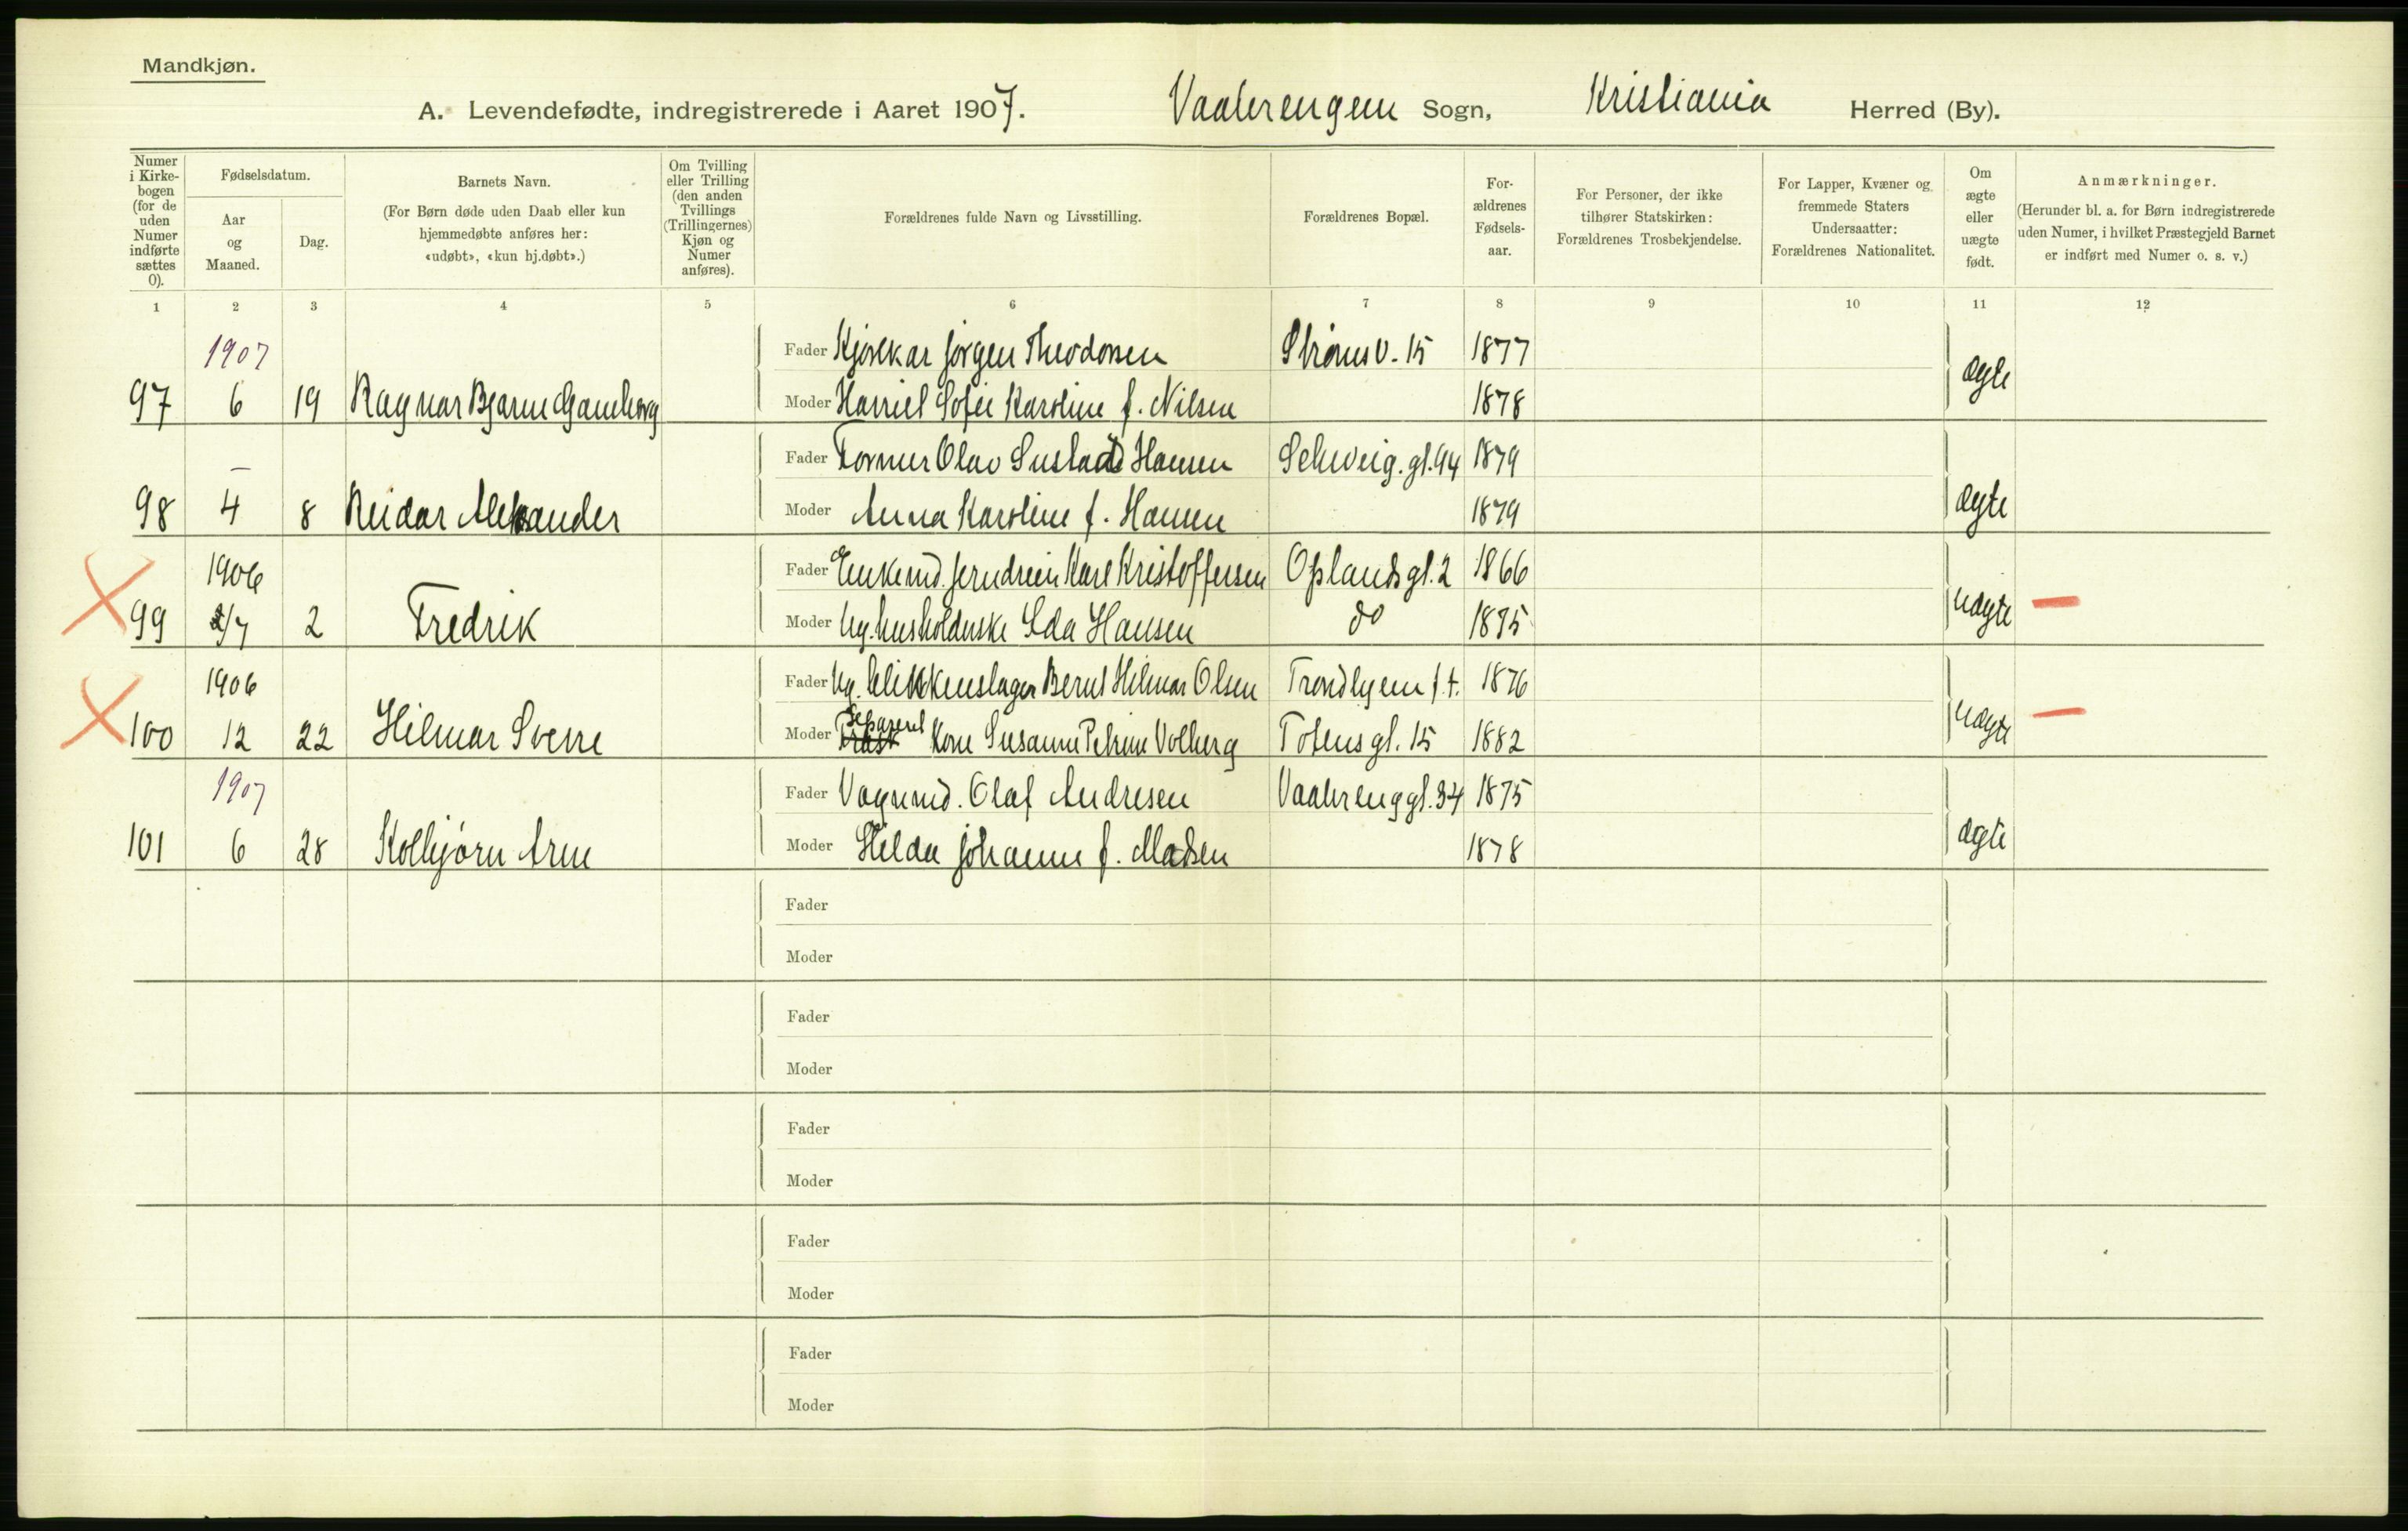 Mandkjøn.
A. Levendefødte, indregistrerede i Aaret 1907. Vaalerengen Sogn, Kristiania Herred (By).
Numer i Kirkebogen (for de uden Numer indførte sættes 0).
Fødselsdatum.
Aar og Maaned.
Dag.
Barnets Navn.
(For Børn døde uden Daab eller kun hjemmedøbte anføres her: «udøbt», «kun hj.døbt».)
Om Tvilling eller Trilling (den anden Tvillings (Trillingernes) Kjøn og Numer anføres).
Forældrenes fulde Navn og Livsstilling.
Forældrenes Bopæl.
Forældrenes Fødselsaar.
For Personer, der ikke tilhører Statskirken: Forældrenes Trosbekjendelse.
For Lapper, Kvæner og fremmede Staters Undersaatter: Forældrenes Nationalitet.
Om ægte eller uægte født.
Anmærkninger.
(Herunder bl. a. for Børn indregistrerede uden Numer, i hvilket Præstegjeld Barnet er indført med Numer o. s. v.)
1 2 3 4 5 6 7 8 9 10 11 12
1907 Fader Kjørekar Jørgen Theodorsen Strømsv. 15 1877 ægte
97 6 19 Ragnar Bjarne Gamborg Moder Harriet Sofie Karoline f. Nilsen 1878
– Fader Former Olav Hansen Schweig.gt. 94 1879 ægte
98 4 8 Reidar Aleksander Moder Anna Karoline f. Hansen 1879
1906 Fader Enkemd. jerndreier Karl Kristoffersen Oplandsgt. 2 1866 uægte –
99 /7 2 Fredrik Moder Ug. husholderske Ida Hansen do 1875
1906 Fader Ug. blikkenslager Bernt Hilmar Olsen Trondhjem f.t. 1876 uægte –
100 12 22 Hilmar Sverre Moder Separeret Kone Susanne Petrine Volberg Totensgt. 15 1882
1907 Fader Vognmd. Olaf Andresen Vaalerenggt. 34 1875 ægte
101 6 28 Kolbjørn Arne Moder Hilda Johanne f. Madsen 1878
Fader
Moder
Fader
Moder
Fader
Moder
Fader
Moder
Fader
Moder